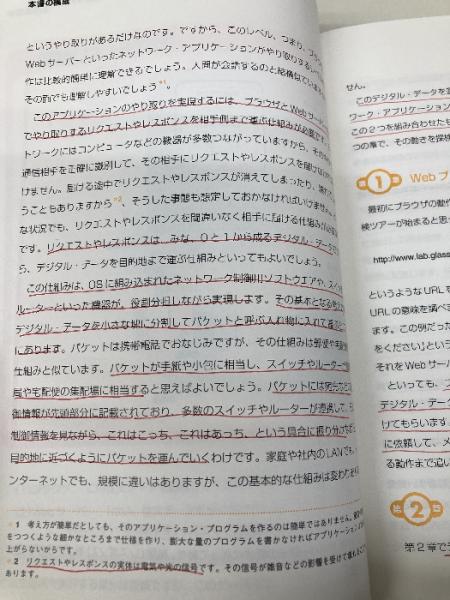 本書の構成
というやり取りがあるだけなのです。ですから、このレベル、つまり、ブラ
Webサーバーといったネットワーク・アプリケーションがやり取りする
作は比較的簡単に理解できるでしょう。人間が会話するのと結構似てい
その意味でも理解しやすいでしょう*1。
このアプリケーションのやり取りを実現するには、ブラウザとWebサーバー
でやり取りするリクエストやレスポンスを相手側まで運ぶ仕組みが必要です。
トワークにはコンピュータなどの機器が多数つながっていますから、その中
通信相手を正確に識別して、その相手にリクエストやレスポンスを届けなけ
けません。届ける途中でリクエストやレスポンスが消えてしまったり、壊れ
うこともありますから*2、そうした事態も想定しておかなければいけません。
な状況でも、リクエストやレスポンスを間違いなく相手に届ける仕組みが必
です。リクエストやレスポンスは、みな、0と1から成るデジタル・データで
ら、デジタル・データを目的地まで運ぶ仕組みといってもよいでしょう。
この仕組みは、OSに組み込まれたネットワーク制御用ソフトウエアや、スイ
ルーターといった機器が、役割分担しながら実現します。その基本となる考え
デジタル・データを小さな塊に分割してパケットと呼ぶ入れ物に入れて運ぶ
にあります。パケットは携帯電話でおなじみですが、その仕組みは郵便や宅配便
仕組みと似ています。パケットが手紙や小包に相当し、スイッチやルーターが
局や宅配便の集配場に相当すると思えばよいでしょう。パケットには宛先など
御情報が先頭部分に記載されており、多数のスイッチやルーターが連携して、
制御情報を見ながら、これはこっち、これはあっち、という具合に振り分け
目的地に近づくようにパケットを運んでいくわけです。家庭や社内のLANでも、
ンターネットでも、規模に違いはありますが、この基本的な仕組みは変わり
*1 考え方が簡単だとしても、そのアプリケーション・プログラムを作るのは簡単ではありません。
をつつくような細かなところまで仕様を作り、膨大な量のプログラムを書かなければアプリケーションは
上がらないからです。
*2 リクエストやレスポンスの実体は電気や光の信号です。その信号が雑音などの影響を受けて壊れること
あります。
せん。
このデジタル・データを運
ワーク・アプリケーション
この2つを組み合わせたも
つの章で、その動きを探検
第1章 Webブ
最初にブラウザの動作
検ツアーが始まると思っ
http://www.lab.glass
というようなURLを
URLの意味を調べ
ます。この例だった
をください」という
それをWebサーバ
といっても、
デジタル・デー
けてもらいます
に依頼して、メ
る動作まで追い
第2章
第2章で